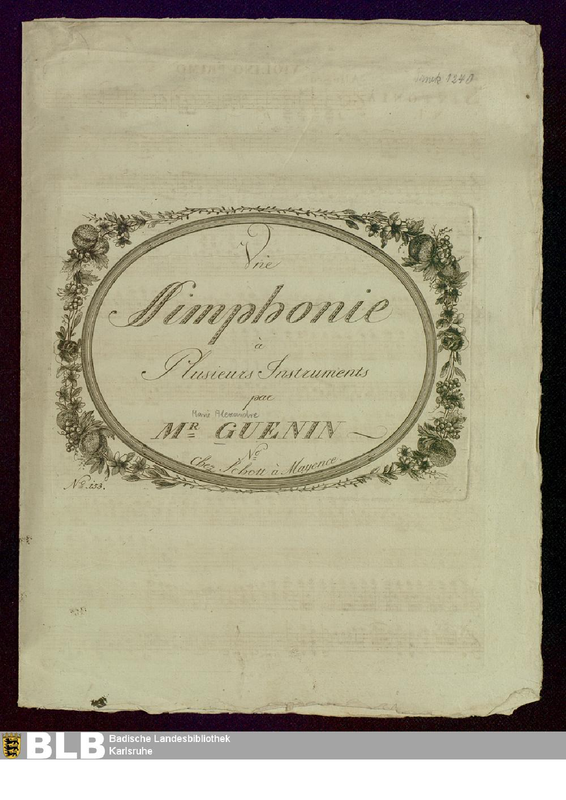 VIOLINO PRIMO
Druck 1240
Vne
Simphonie
à
Plusieurs Instruments
par
Marie Alexandre
MR. GUENIN
No.
Chez Schott à Mayence
No. 153.
BLB
Badische Landesbibliothek
Karlsruhe